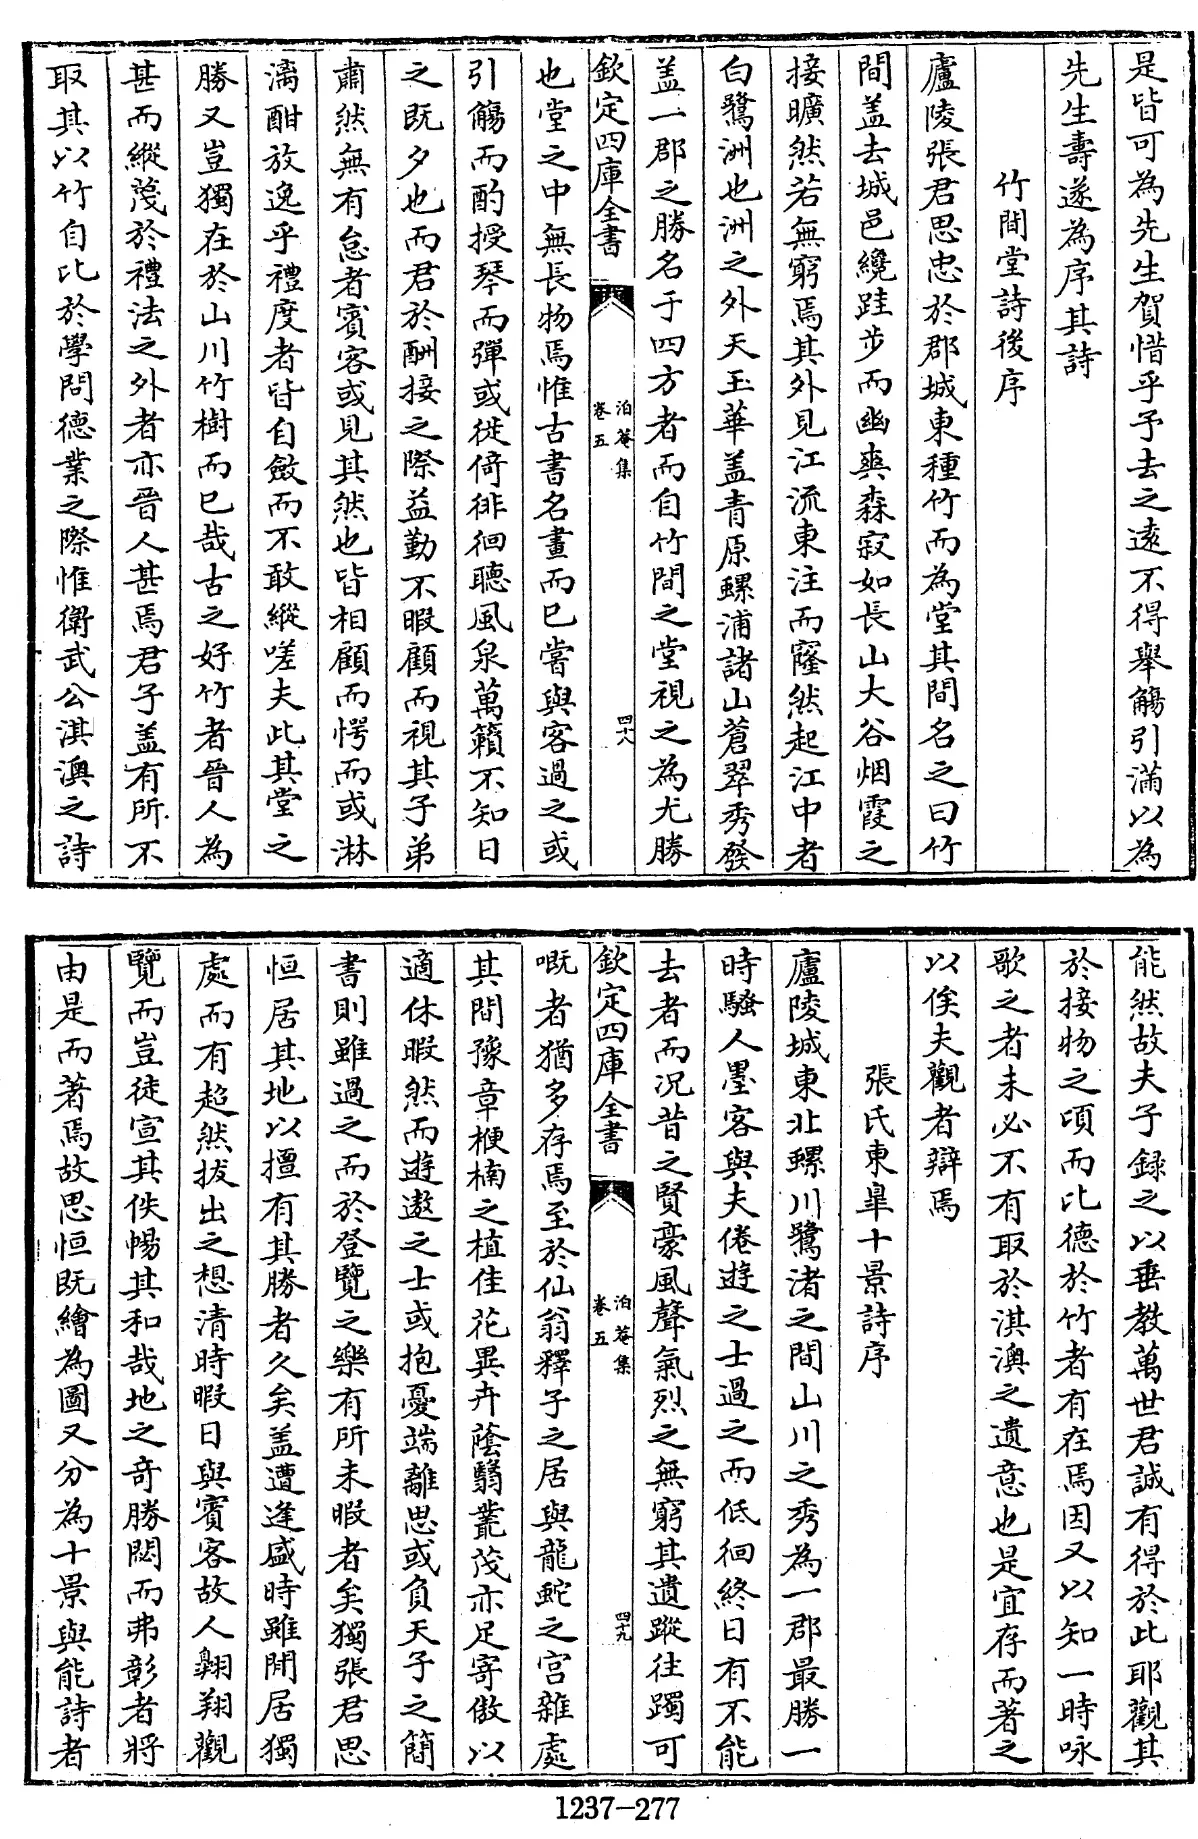 是皆可為先生賀惜乎予去之遠不得舉觴引滿以為
先生壽遂為序其詩
竹間堂詩後序
廬陵張君思忠於郡城東種竹而為堂其間名之曰竹
間盖去城邑纔跬步而幽爽森寂如長山大谷烟霞之
接曠然若無窮焉其外見江流東注而窿然起江中者
白鷺洲也洲之外天玉華盖青原螺浦諸山蒼翠秀發
盖一郡之勝名于四方者而自竹間之堂視之為尤勝
欽定四庫全書
泊菴集
卷五
四十八
也堂之中無長物焉惟古書名畫而已嘗與客過之或
引觴而酌授琴而彈或徙倚徘徊聽風泉萬籟不知日
之既夕也而君於酬接之際益勤不暇顧而視其子弟
肅然無有怠者賓客或見其然也皆相顧而愕而或淋
漓酣放逸乎禮度者皆自斂而不敢縱嗟夫此其堂之
勝又豈獨在於山川竹樹而已哉古之好竹者晉人為
甚而縱蕩於禮法之外者亦晉人甚焉君子盖有所不
取其以竹自比於學問德業之際惟衛武公淇澳之詩
能然故夫子録之以垂教萬世君誠有得於此耶觀其
於接物之頃而比德於竹者有在焉因又以知一時咏
歌之者未必不有取於淇澳之遺意也是宜存而著之
以俟夫觀者辯焉
張氏東臯十景詩序
廬陵城東北螺川鷺渚之間山川之秀為一郡最勝一
時騷人墨客與夫倦遊之士過之而低徊終日有不能
去者而況昔之賢豪風聲氣烈之無窮其遺蹤往躅可
欽定四庫全書
泊菴集
卷五
四十九
嘅者猶多存焉至於仙翁釋子之居與龍蛇之宫雜處
其間豫章楩楠之植佳花異卉蔭翳叢茂亦足寄傲以
適休暇然而遊遨之士或抱憂端離思或負天子之簡
書則雖過之而於登覽之樂有所未暇者矣獨張君思
恒居其地以擅有其勝者久矣盖遭逢盛時雖閒居獨
處而有超然拔出之想清時暇日與賓客故人翺翔觀
覽而豈徒宣其佚暢其和哉地之奇勝閟而弗彰者將
由是而著焉故思恒既繪為圖又分為十景與能詩者
1237-277